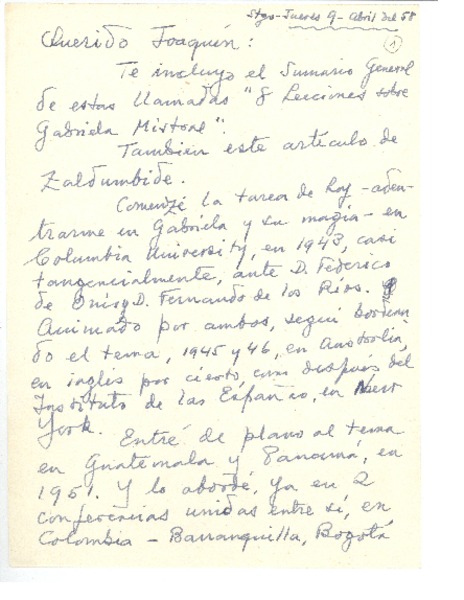 Stgo-Jueves 9-Abril del 58
1
Querido Joaquín:
Te incluyo el Sumario General
de estas llamadas "8 Lecciones sobre
Gabriela Mistral".
También este artículo de
Zaldumbide.
Comenzé la tarea de hoy -aden-
trarme en Gabriela y su magia- en
Columbia University, en 1943, casi
tangencialmente, ante D. Federico
de Onís y D. Fernando de los Ríos.
Animado por ambos, seguí
do el tema, 1945 y 46, en Australia,
en inglés por cierto, después del
Instituto de las Españas, en New
York.
Entré de plano al tema
en Guatemala y Panamá, en
1951. Y lo abordé, ya en 2
conferencias unidas entre sí, en
Colombia - Barranquilla, Bogotá